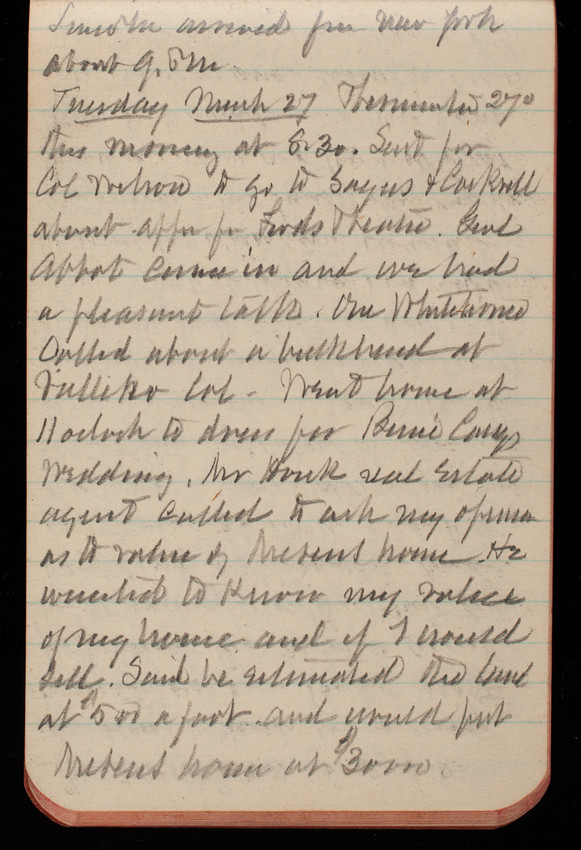 arrived from New York
about 9. PM
Tuesday March 27 Thermometer 27°
this morning at 6:30. Sent for
Col Wilson to go to Sayers & Cockrell
about appn for Fords Theatre. Genl
Abbot came in and we had
a pleasant talk. One Whitehouse
Called about a bulkhead at
Vallejo Cal - Went home at
11 oclock to dress for Camps
Wedding. Mr Houk real Estate
agent called to ask my opinion
as to value of present home. He
wanted to know my value
of my home and if I would
sell. Said he estimated the land
at $5 00 a foot. and would put
present home at $30000